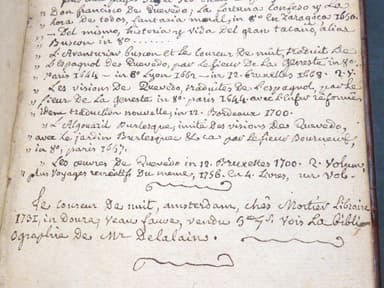 " Don francisco de Quevedo, La fortuna con seso y La
hora de todos, fantasia moral, in 8° en Zaragoça 1650.
" ... Del mismo, historia y vida del gran tacaño, alias
Buscon in 80
" L'avanturier Buscon et le Coureur de nuit, traduit de
L'Espagnol des Quevedo, par Le Sieur de La Geneste in 8o.
Paris 1644 – in 8° Lyon 1662 – in 12. bruxelles 1668. 2. v.
" Les visions de Quevedo, traduites de L'espagnol, par Le
Sieur De La Geneste in 8°. paris 1644. avec L'Enfer réformé,
idem traduction nouvelle, in 12. Bordeaux 1700.
" L'Algouasil Burlesque, imité des visions de Quevedo,
avec Le jardin Burlesque &c.a par Le Sieur Bourneuf,
in 8o, paris 1657.
" Les œuvres de Quevedo in 12. Bruxelles 1700. 2. Volum,
plus Voyages recréatifs Du meme, 1756. en 4. Livres, un Vol.
Le coureur de nuit, amsterdam, chés Mortier Libraire
1731, in douze, veau fauve, vendu Vois La Bibli
ographie de Mr Delalain.